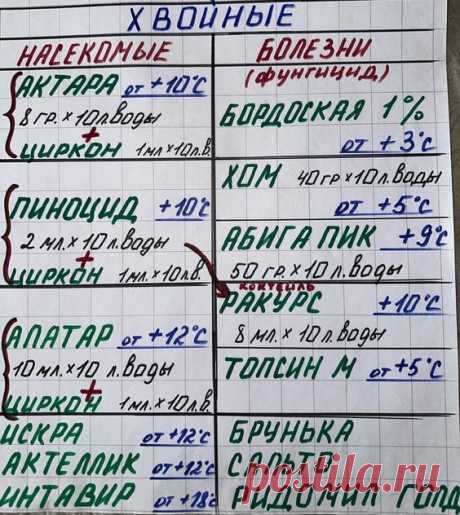 ХВОЙНЫЕ
НАСЕКОМЫЕ
АКТАРА от +10°С
8 гр. × 10 л. воды
+
ЦИРКОН 1 мл × 10 л.в.
ПИНОЦИД +10°С
2 мл. × 10 л. воды
+
ЦИРКОН 1 мл × 10 л.в.
АПАТАР от +12°С
10 мл. × 10 л. воды
+
ЦИРКОН 1 мл. × 10 л.в.
ИСКРА от +12°С
АКТЕЛЛИК от +12°С
ИНТАВИР от +18°С
БОЛЕЗНИ
(фунгицид)
БОРДОСКАЯ 1%
от +3°С
ХОМ 40 гр × 10 л. воды
от +5°С
АБИГА ПИК +9°С
50 гр. × 10 л. воды
коктейль
РАКУРС +10°С
8 мл. × 10 л. воды
ТОПСИН М от +5°С
БРУНЬКА
САЛЬТО
РИДОМИЛ ГОЛД
postila.ru